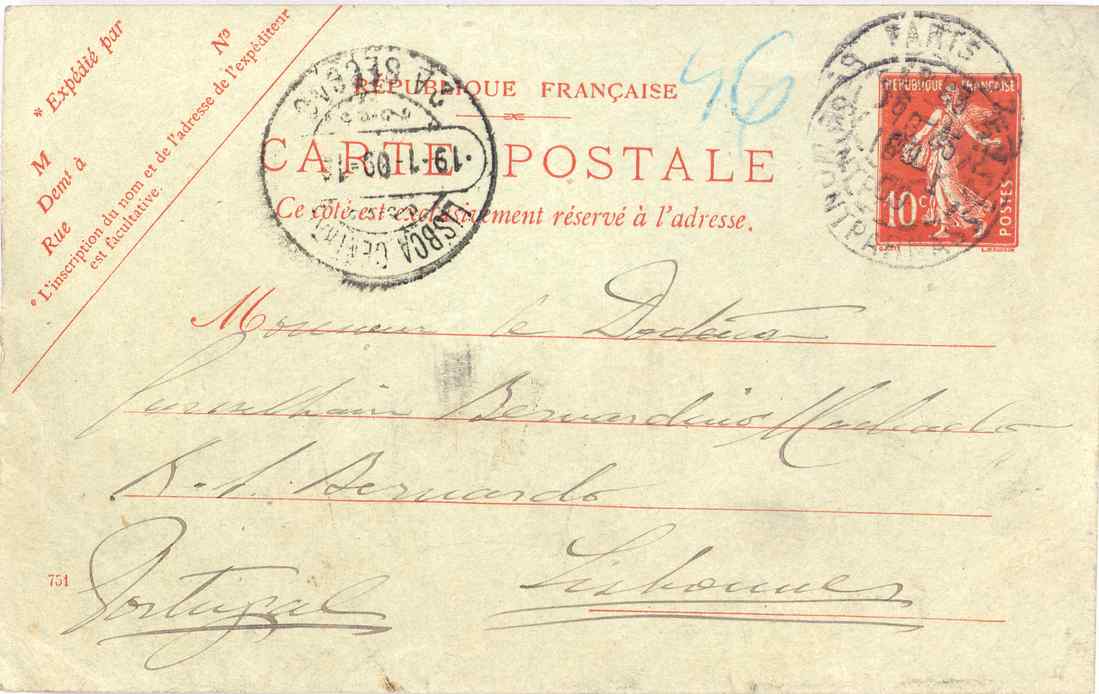 * Expédié par
N°
M
Demt à
Rue
* L'inscription du nom et de l'adresse de l'expéditeur
est facultative.
RÉPUBLIQUE FRANÇAISE
46
CARTE POSTALE
Ce côté est exclusivement réservé à l'adresse.
2ª SECÇÃO
19-1-09-1
LISBOA CENTRAL
PARIS
REPUBLIQUE FRANÇAISE
10 c.
POSTES
Monsieur le Docteur
Conselheiro Bernardino Machado
R. S. Bernardo
Portugal Lisbonne
751